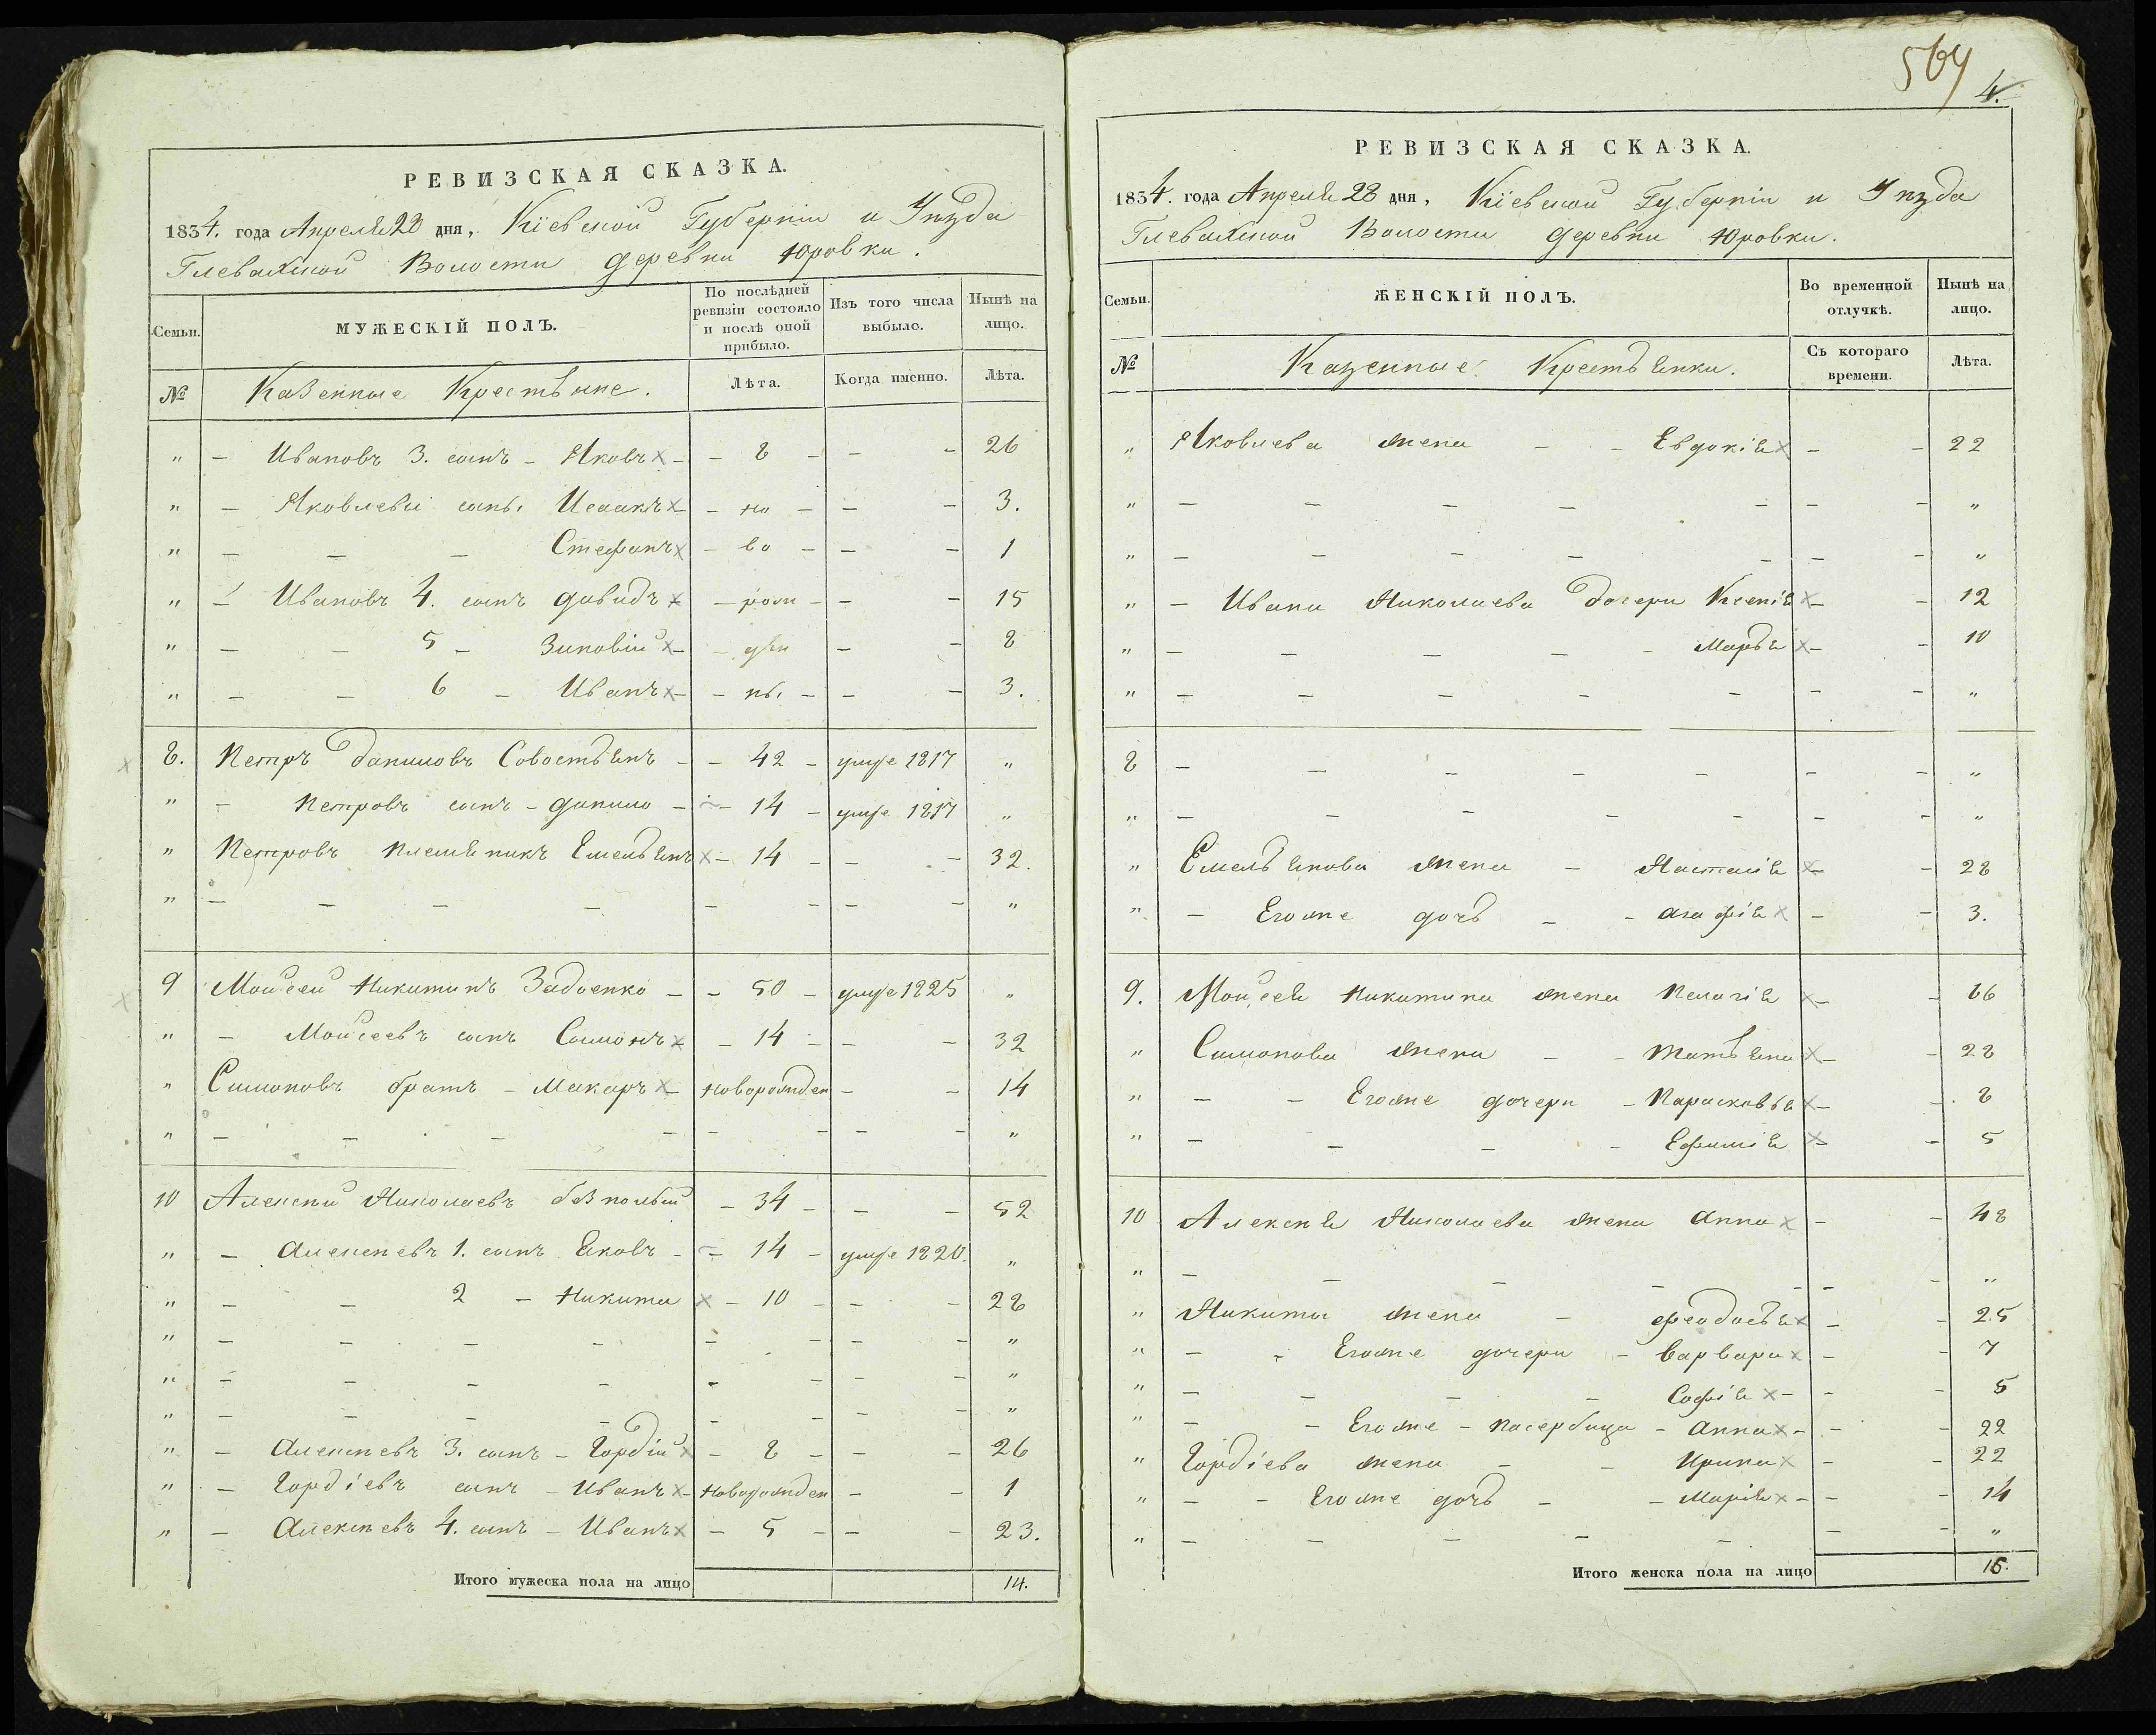 РЕВИЗСКАЯ СКАЗКА.
1834. года Апреля 28 дня, Кіевской Губерніи и Уѣзда
Глевахской Волости деревни Юровки.
Семьи. МУЖЕСКІЙ ПОЛЪ. По послѣдней ревизіи состояло и послѣ оной прибыло. Изъ того числа выбыло. Нынѣ на лицо.
№ Казенные Крестьяне. Лѣта. Когда именно. Лѣта.
" – Ивановъ 3. сынъ – Яковъ × – 8 – – – 26
" – Яковлевы сыны Исаакъ × – но – – – 3.
" – – – Стефанъ × – во – – – 1
" – Ивановъ 4. сынъ Давидъ × – рож – – – 15
" – – 5 – Зиновій × – – – 8
" – – 6 – Иванъ × – ны – – – 3.
8. Петръ Даниловъ Совостьянъ – – 42 – умре 1817 "
" – Петровъ сынъ – Данило – – 14 – умре 1817 "
" Петровъ племяникъ Емельянъ × – 14 – – – 32.
" – – – – – – – – "
9 Мойсей Никитинъ Задоенко – – 50 – умре 1825 "
" – Мойсеевъ сынъ Симонъ × – 14 – – – 32
" Симоновъ братъ – Макаръ × – Новорожден – – 14
" – – – – – – – – "
10 Алексѣй Николаевъ безпалый – 34 – – – 52
" – Алексѣевъ 1. сынъ Яковъ – – 14 – умре 1820. "
" – – 2 – Никита × – 10 – – – 28
" – – – – – – – – "
" – – – – – – – – "
" – – – – – – – – "
" – Алексѣевъ 3. сынъ – Гордій × – 8 – – – 26
" – Гордіевъ сынъ – Иванъ × – Новорожден – – 1
" – Алексѣевъ 4. сынъ – Иванъ × – 5 – – – 23.
Итого мужеска пола на лицо 14.
569
4.
РЕВИЗСКАЯ СКАЗКА.
1834. года Апреля 28 дня, Кіевской Губерніи и Уѣзда
Глевахской Волости деревни Юровки.
Семьи. ЖЕНСКІЙ ПОЛЪ. Во временной отлучкѣ. Нынѣ на лицо.
№ Казенные Крестьянки. Съ котораго времени. Лѣта.
" Яковлева жена – – Евдокія × – – 22
" – – – – – – – "
" – – – – – – – "
" – Ивана Николаева дочери Ксенія × – – 12
" – – – – – Марья × – – 10
" – – – – – – – "
8 – – – – – – – "
" – – – – – – – "
" Емельянова жена – Настасія × – – 28
" – Егоже дочь – – Агафія × – – 3.
9. Мойсея Никитина жена Пелагія × – – 66
" Симонова жена – – Татьяна × – – 28
" – – Егоже дочери – Парасковья × – – 8
" – – – – Ефимія × – – 5
10 Алексѣя Николаева жена Анна × – – 48
" – – – – – – – "
" Никиты жена – Феодосья × – – 25
" – – Егоже дочери – Варвара × – – 7
" – – – – Софія × – – – 5
" – – Егоже – пасербица – Анна × – – – 22
" Гордіева жена – – Ирина × – – 22
" – – Егоже дочь – – Марія × – – – 14
" – – – – – – – "
Итого женска пола на лицо 15.